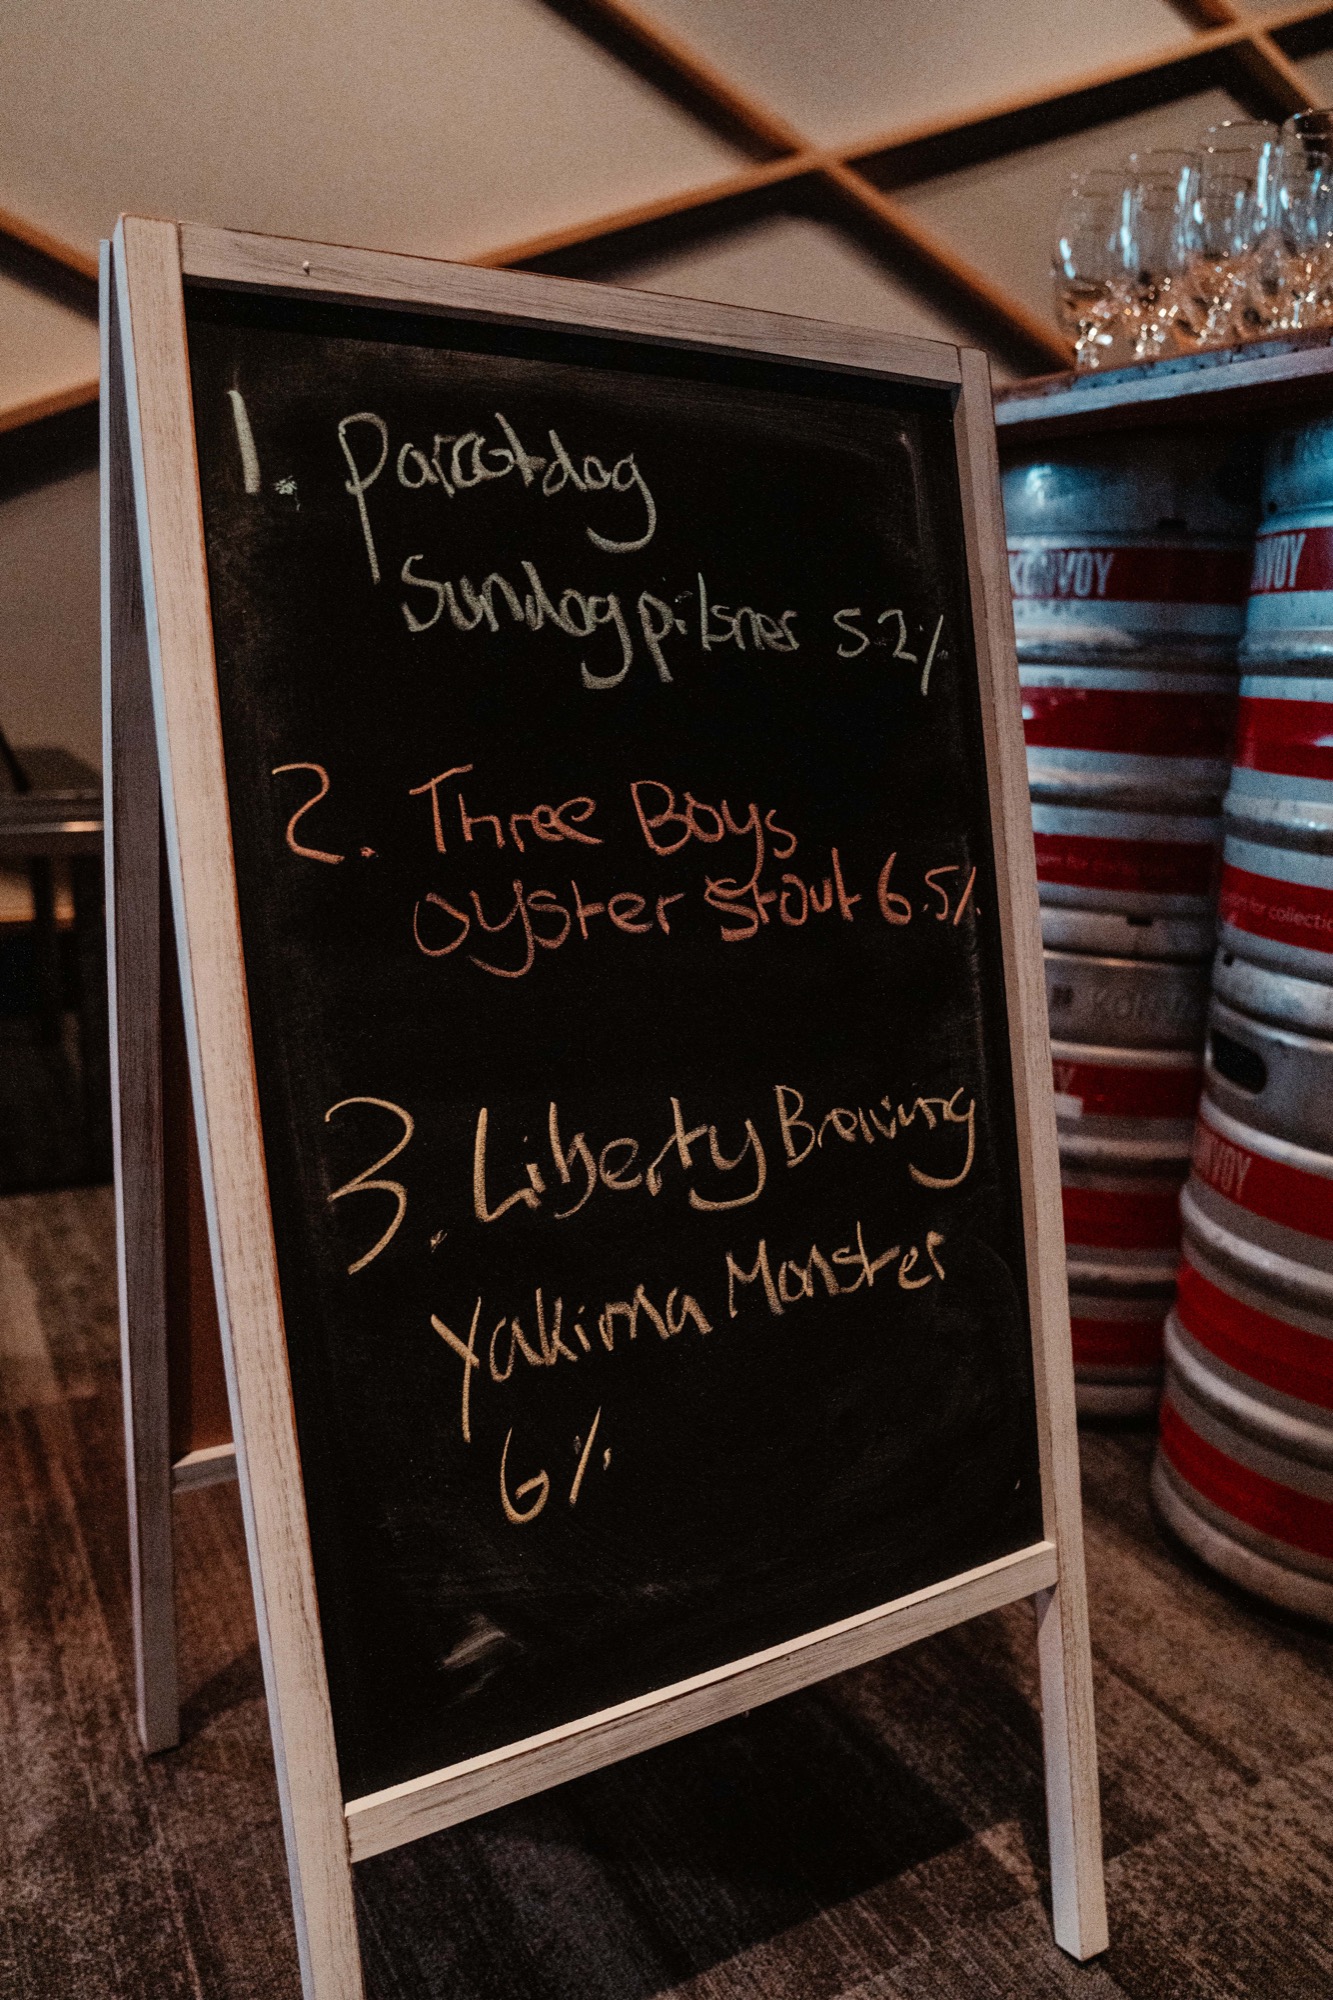 1. Parrotdog
Sundog pilsner 5.2%
2. Three Boys
oyster stout 6.5%
3. Liberty Brewing
Yakima Monster
6%
KONVOY
NVOY
for collectio
KONV
VOY